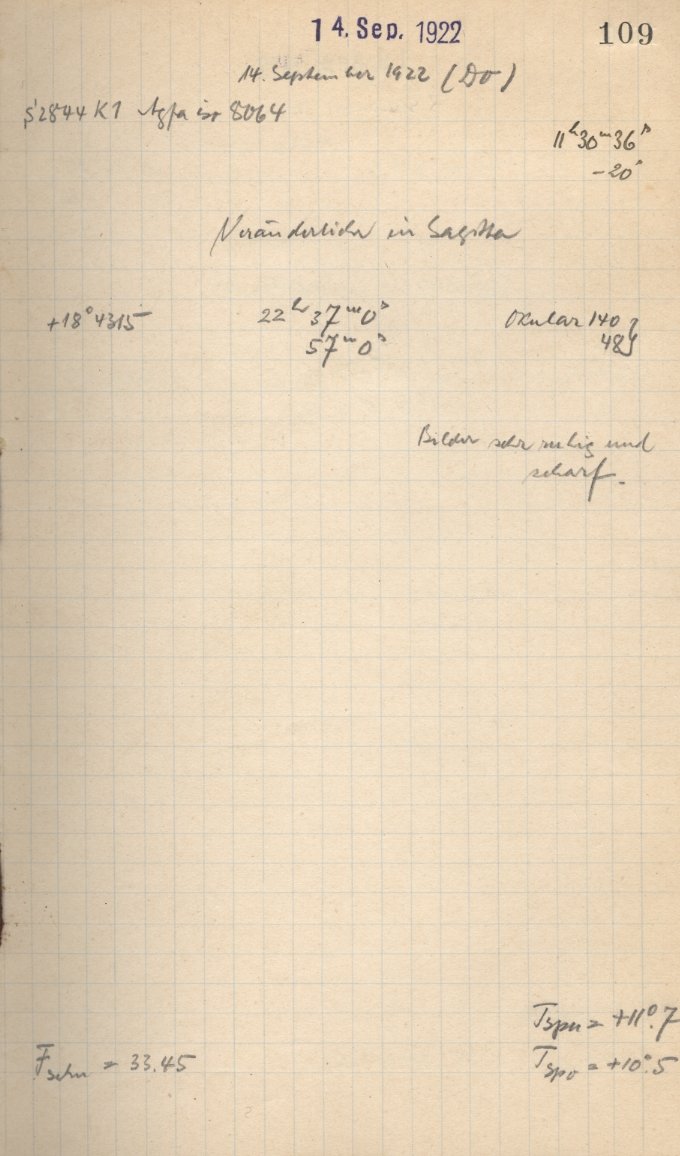 14. Sep. 1922
109
14. September 1922 (Do)
S2844 K1 Agfa iso 8064
11ʰ30ᵐ36ˢ
-20ˢ
Veränderlicher in Sagitta
+18°4315
22ʰ37ᵐ0ˢ
57ᵐ0ˢ
Okular 140
48
Bilder sehr ruhig und
scharf.
Tspu = +11°.7
Fschu = 33.45
Tspo = +10°.5